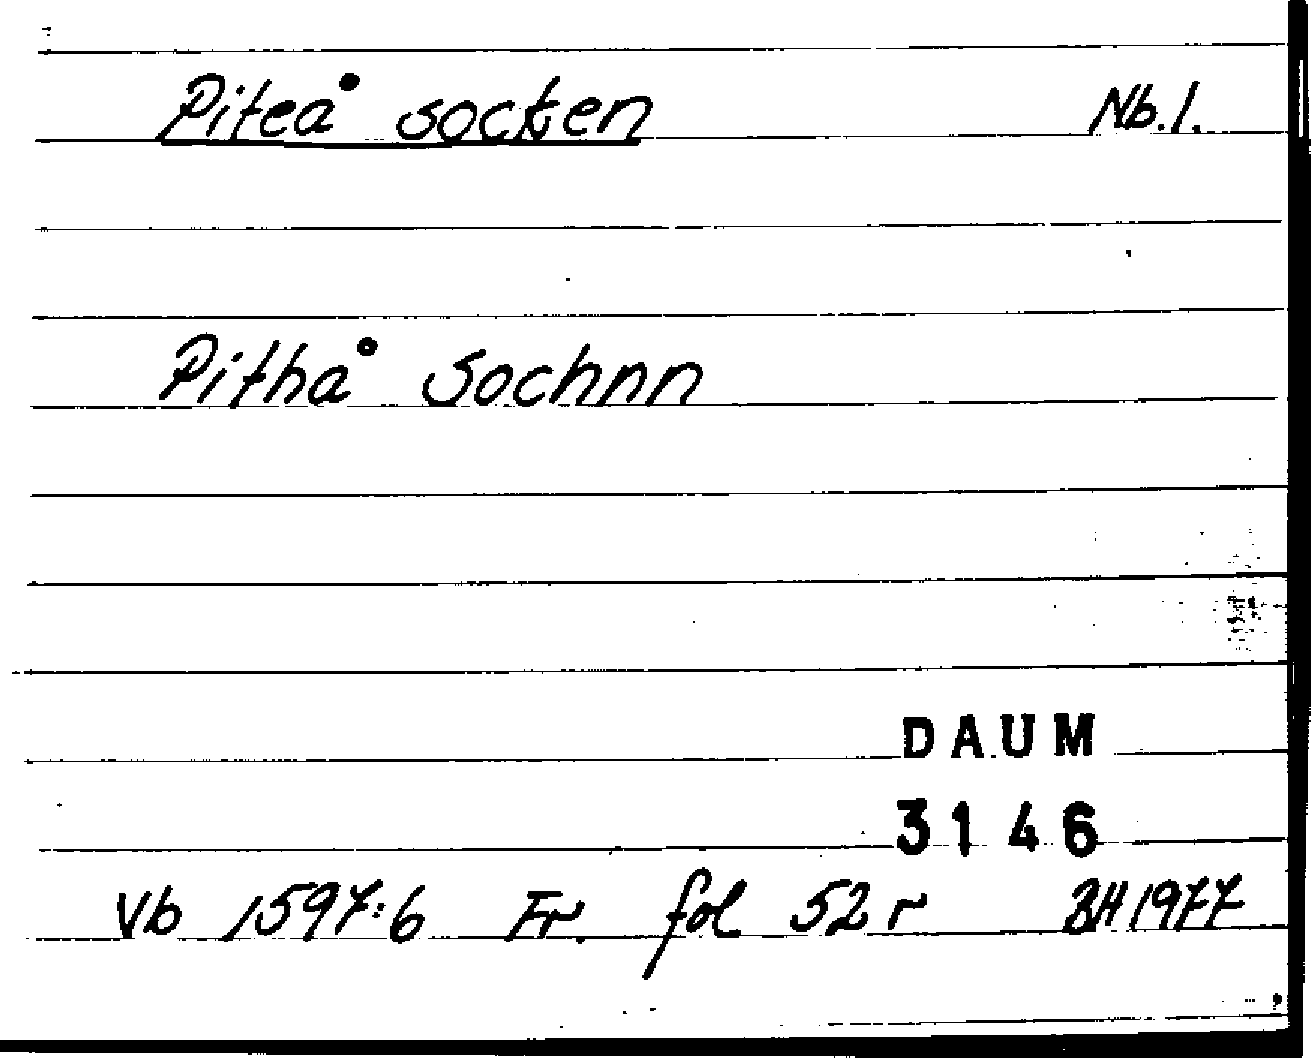 Piteå socken Nb.l.
Pithå Sochnn
DAUM
3146
Vb 1597:6 Fr. fol 52 r BH 1977